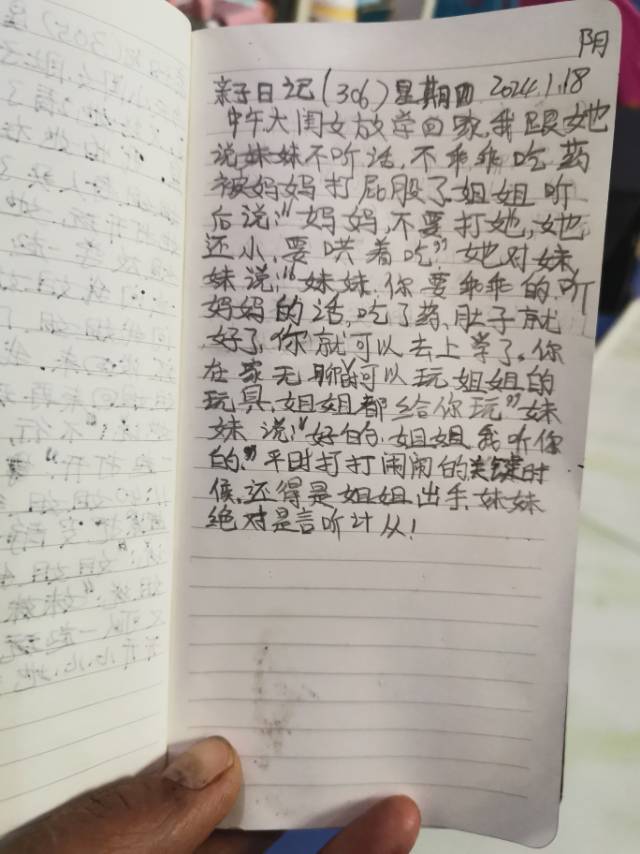 阴
亲子日记(306)星期四 2024.1.18
中午大闺女放学回家,我跟她
说妹妹不听话,不乖乖吃药
被妈妈打屁股了,姐姐听
后说:“妈妈,不要打她,她
还小,要哄着吃”她对妹
妹说:“妹妹,你要乖乖的,听
妈妈的话,吃了药,肚子就
好了,你就可以去上学了。你
在家无聊时可以玩姐姐的
玩具,姐姐都给你玩”妹
妹说:“好的,姐姐,我听你
的,”平时打打闹闹的关键时
候,还得是姐姐出手,妹妹
绝对是言听计从!